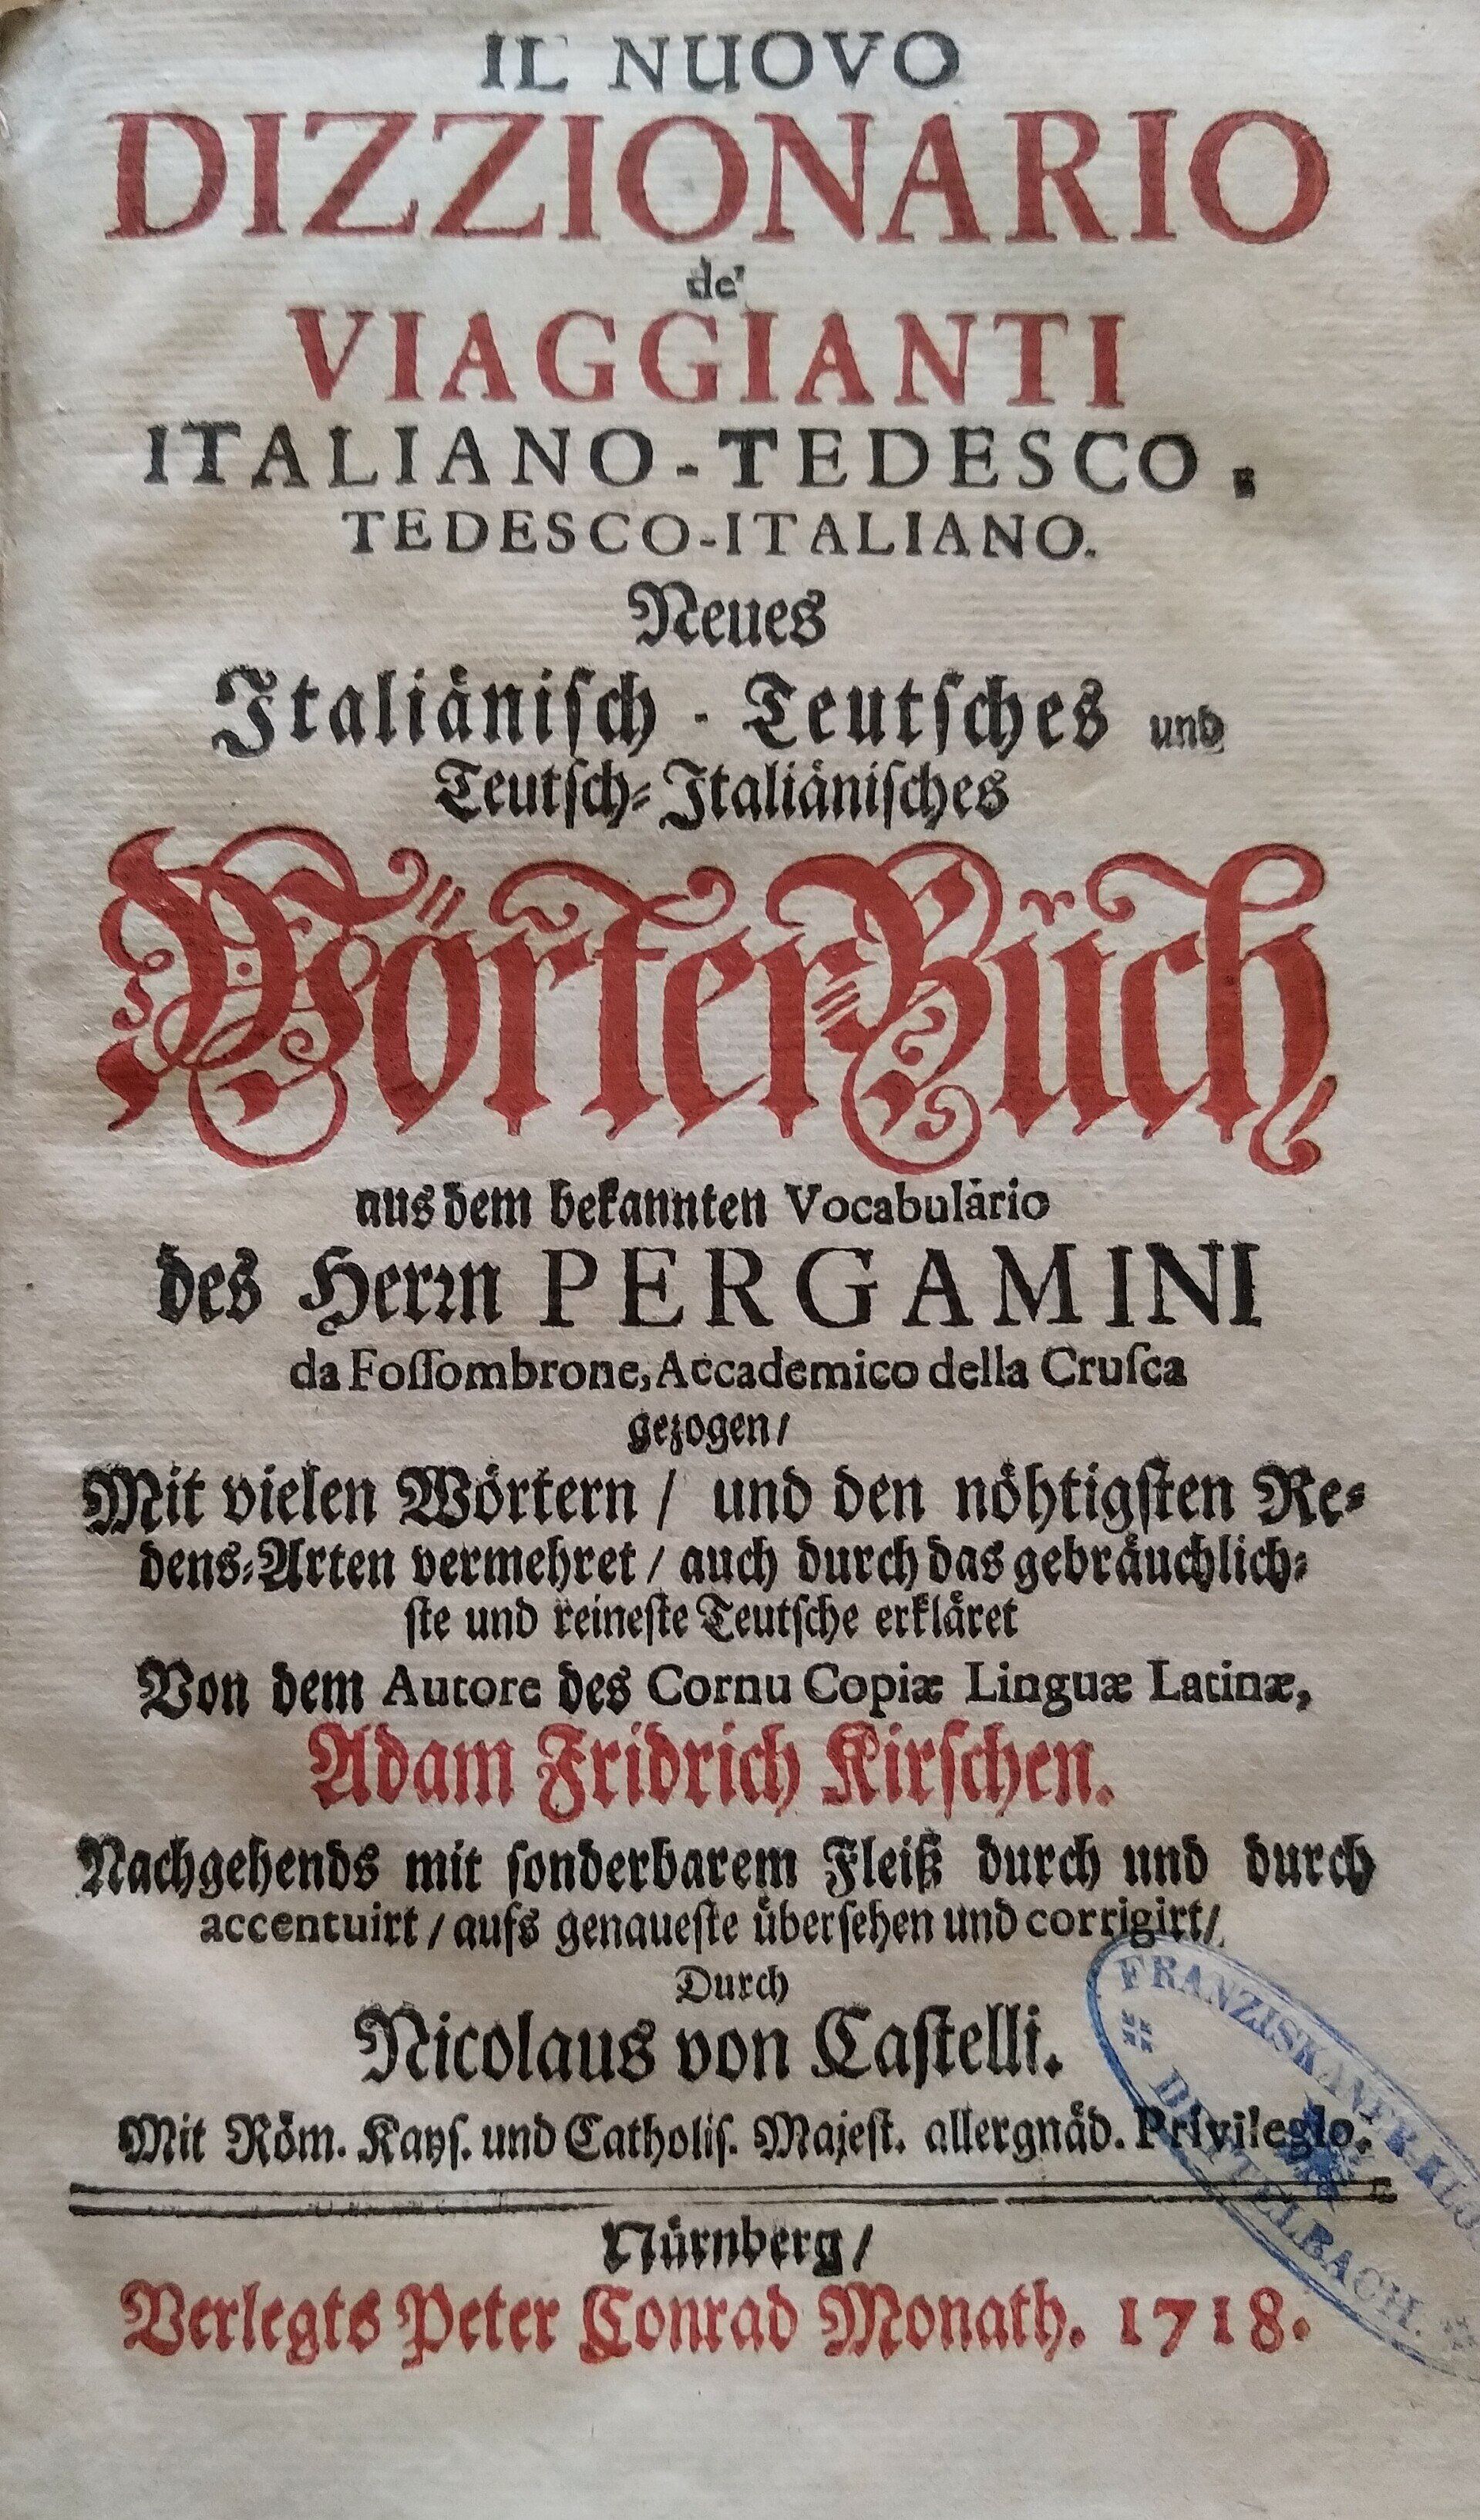 IL NUOVO
DIZZIONARIO
de'
VIAGGIANTI
ITALIANO-TEDESCO,
TEDESCO-ITALIANO.
Neues
Italiänisch - Teutsches und
Teutsch-Italiänisches
WörterBuch
aus dem bekannten Vocabulario
des Herrn PERGAMINI
da Foſſombrone, Accademico della Cruſca
gezogen/
Mit vielen Wörtern / und den nöhtigſten Re-
dens-Arten vermehret / auch durch das gebräuchlich-
ſte und reineſte Teutſche erkläret
Von dem Autore des Cornu Copiæ Linguæ Latinæ,
Adam Fridrich Kirſchen.
Nachgehends mit ſonderbarem Fleiß durch und durch
accentuirt / aufs genaueſte überſehen und corrigirt /
Durch
Nicolaus von Caſtelli.
Mit Röm. Kayſ. und Catholiſ. Majeſt. allergnäd. Privilegio.
Nürnberg /
Verlegts Peter Conrad Monath. 1718.
FRANZISKANER-KLO
DETTELBACH.